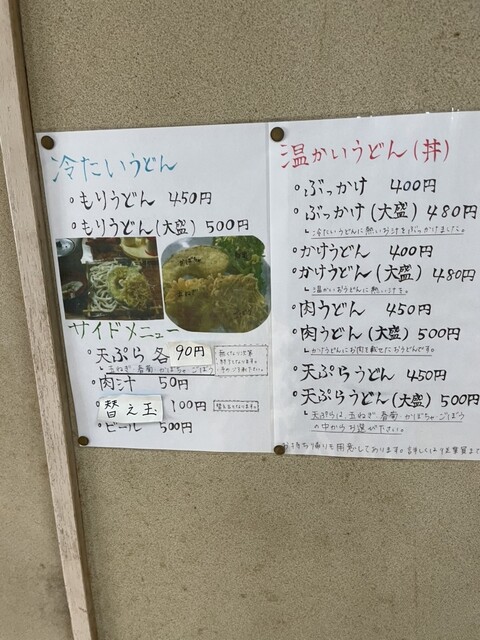 冷たいうどん
もりうどん 450円
もりうどん(大盛) 500円
サイドメニュー
天ぷら 各 90円
玉ねぎ・春菊・かぼちゃ・ごぼう
肉汁 50円
替え玉 100円
ビール 500円
温かいうどん(丼)
ぶっかけ 400円
ぶっかけ(大盛) 480円
冷たいうどんに熱いお汁をぶっかけました。
かけうどん 400円
かけうどん(大盛) 480円
温かいおうどんに熱い汁を。
肉うどん 450円
肉うどん(大盛) 500円
かけうどんにお肉を載せたおうどんです。
天ぷらうどん 450円
天ぷらうどん(大盛) 500円
天ぷらは、玉ねぎ・春菊・かぼちゃ・ごぼう
の中からお選び下さい。
お持ち帰りも用意しております。詳しくは従業員まで